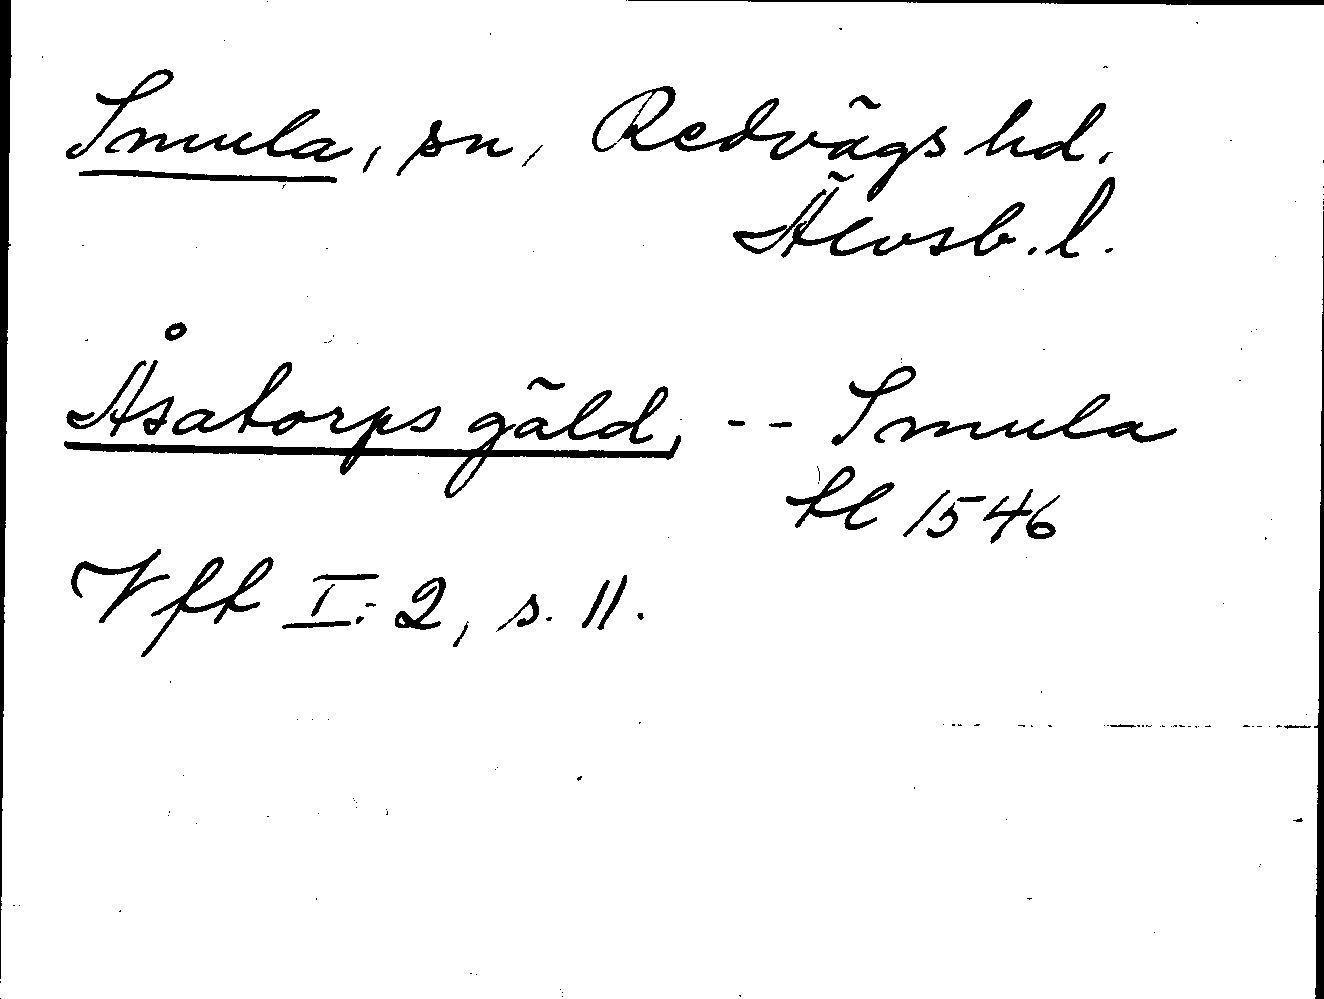 Smula, sn, Redvägs hd.
Älvsb. l.
Åsatorps gäld, -- Smula
kl 1546
Vff I:2, s. 11.